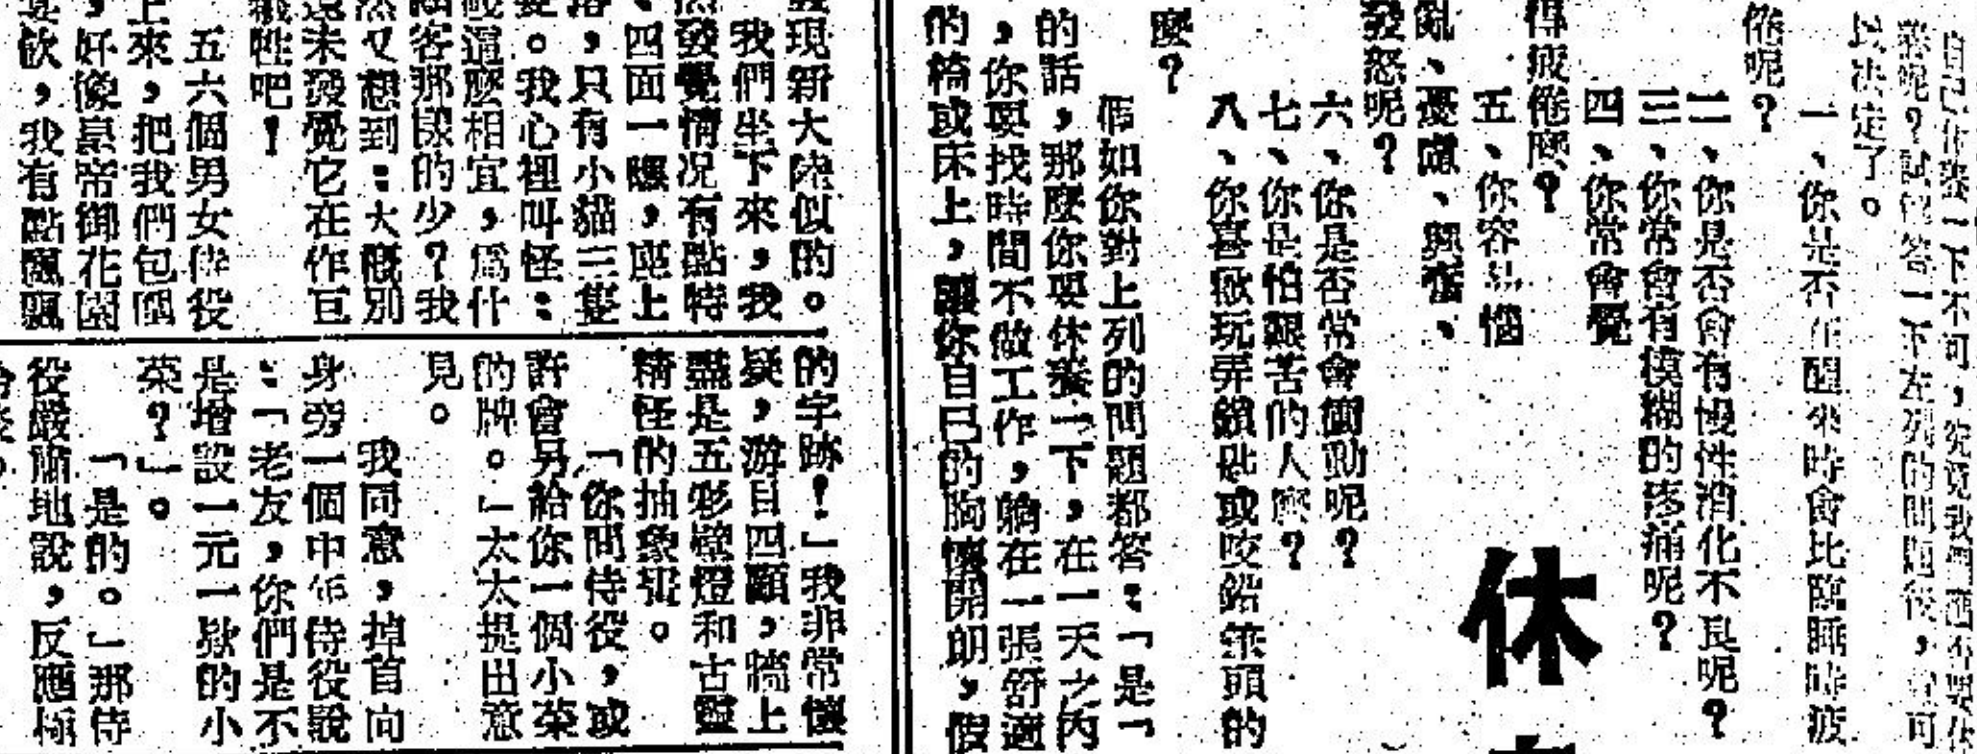 自己休養一下不可,究竟我們應否要休
養呢?試答一下左列的問題後,當可
以決定了。
一、你是否在醒來時會比臨睡時疲
倦呢?
二、你是否會有慢性消化不良呢?
三、你常會有模糊的疼痛呢?
四、你常會覺
得疲倦麼?
五、你容易惱
亂、憂慮、興奮、
發怒呢?
六、你是否常會衝動呢?
七、你是怕跟苦的人麼?
八、你喜歡玩弄鎖匙或咬鉛筆頭的
麼?
假如你對上列的問題都答:「是」
的話,那麼你要休養一下,在一天之內
,你要找時間不做工作,躺在一張舒適
的椅或床上,讓你自己的胸懷開朗,假
休
發現新大陸似的。
我們坐下來,我
然發覺情況有點特
、四面一瞧,座上
落,只有小貓三隻
。我心裡叫怪:
這麼相宜,爲什
客那樣的少?我
然又想到:大概別
還未發覺它在作百
犧牲吧!
五六個男女侍役
上來,把我們包圍
,好像皇帝御花園
宴飲,我有點飄飄
的字跡!」我非常懷
疑,游目四顧,牆上
盡是五彩壁燈和古靈
精怪的抽象畫。
「你問侍役,或
許會另給你一個小菜
的牌。」太太提出意
見。
我同意,掉首向
身旁一個中年侍役說
:「老友,你們是不
是增設一元一款的小
菜?」。
「是的。」那侍
役嚴肅地說,反應極